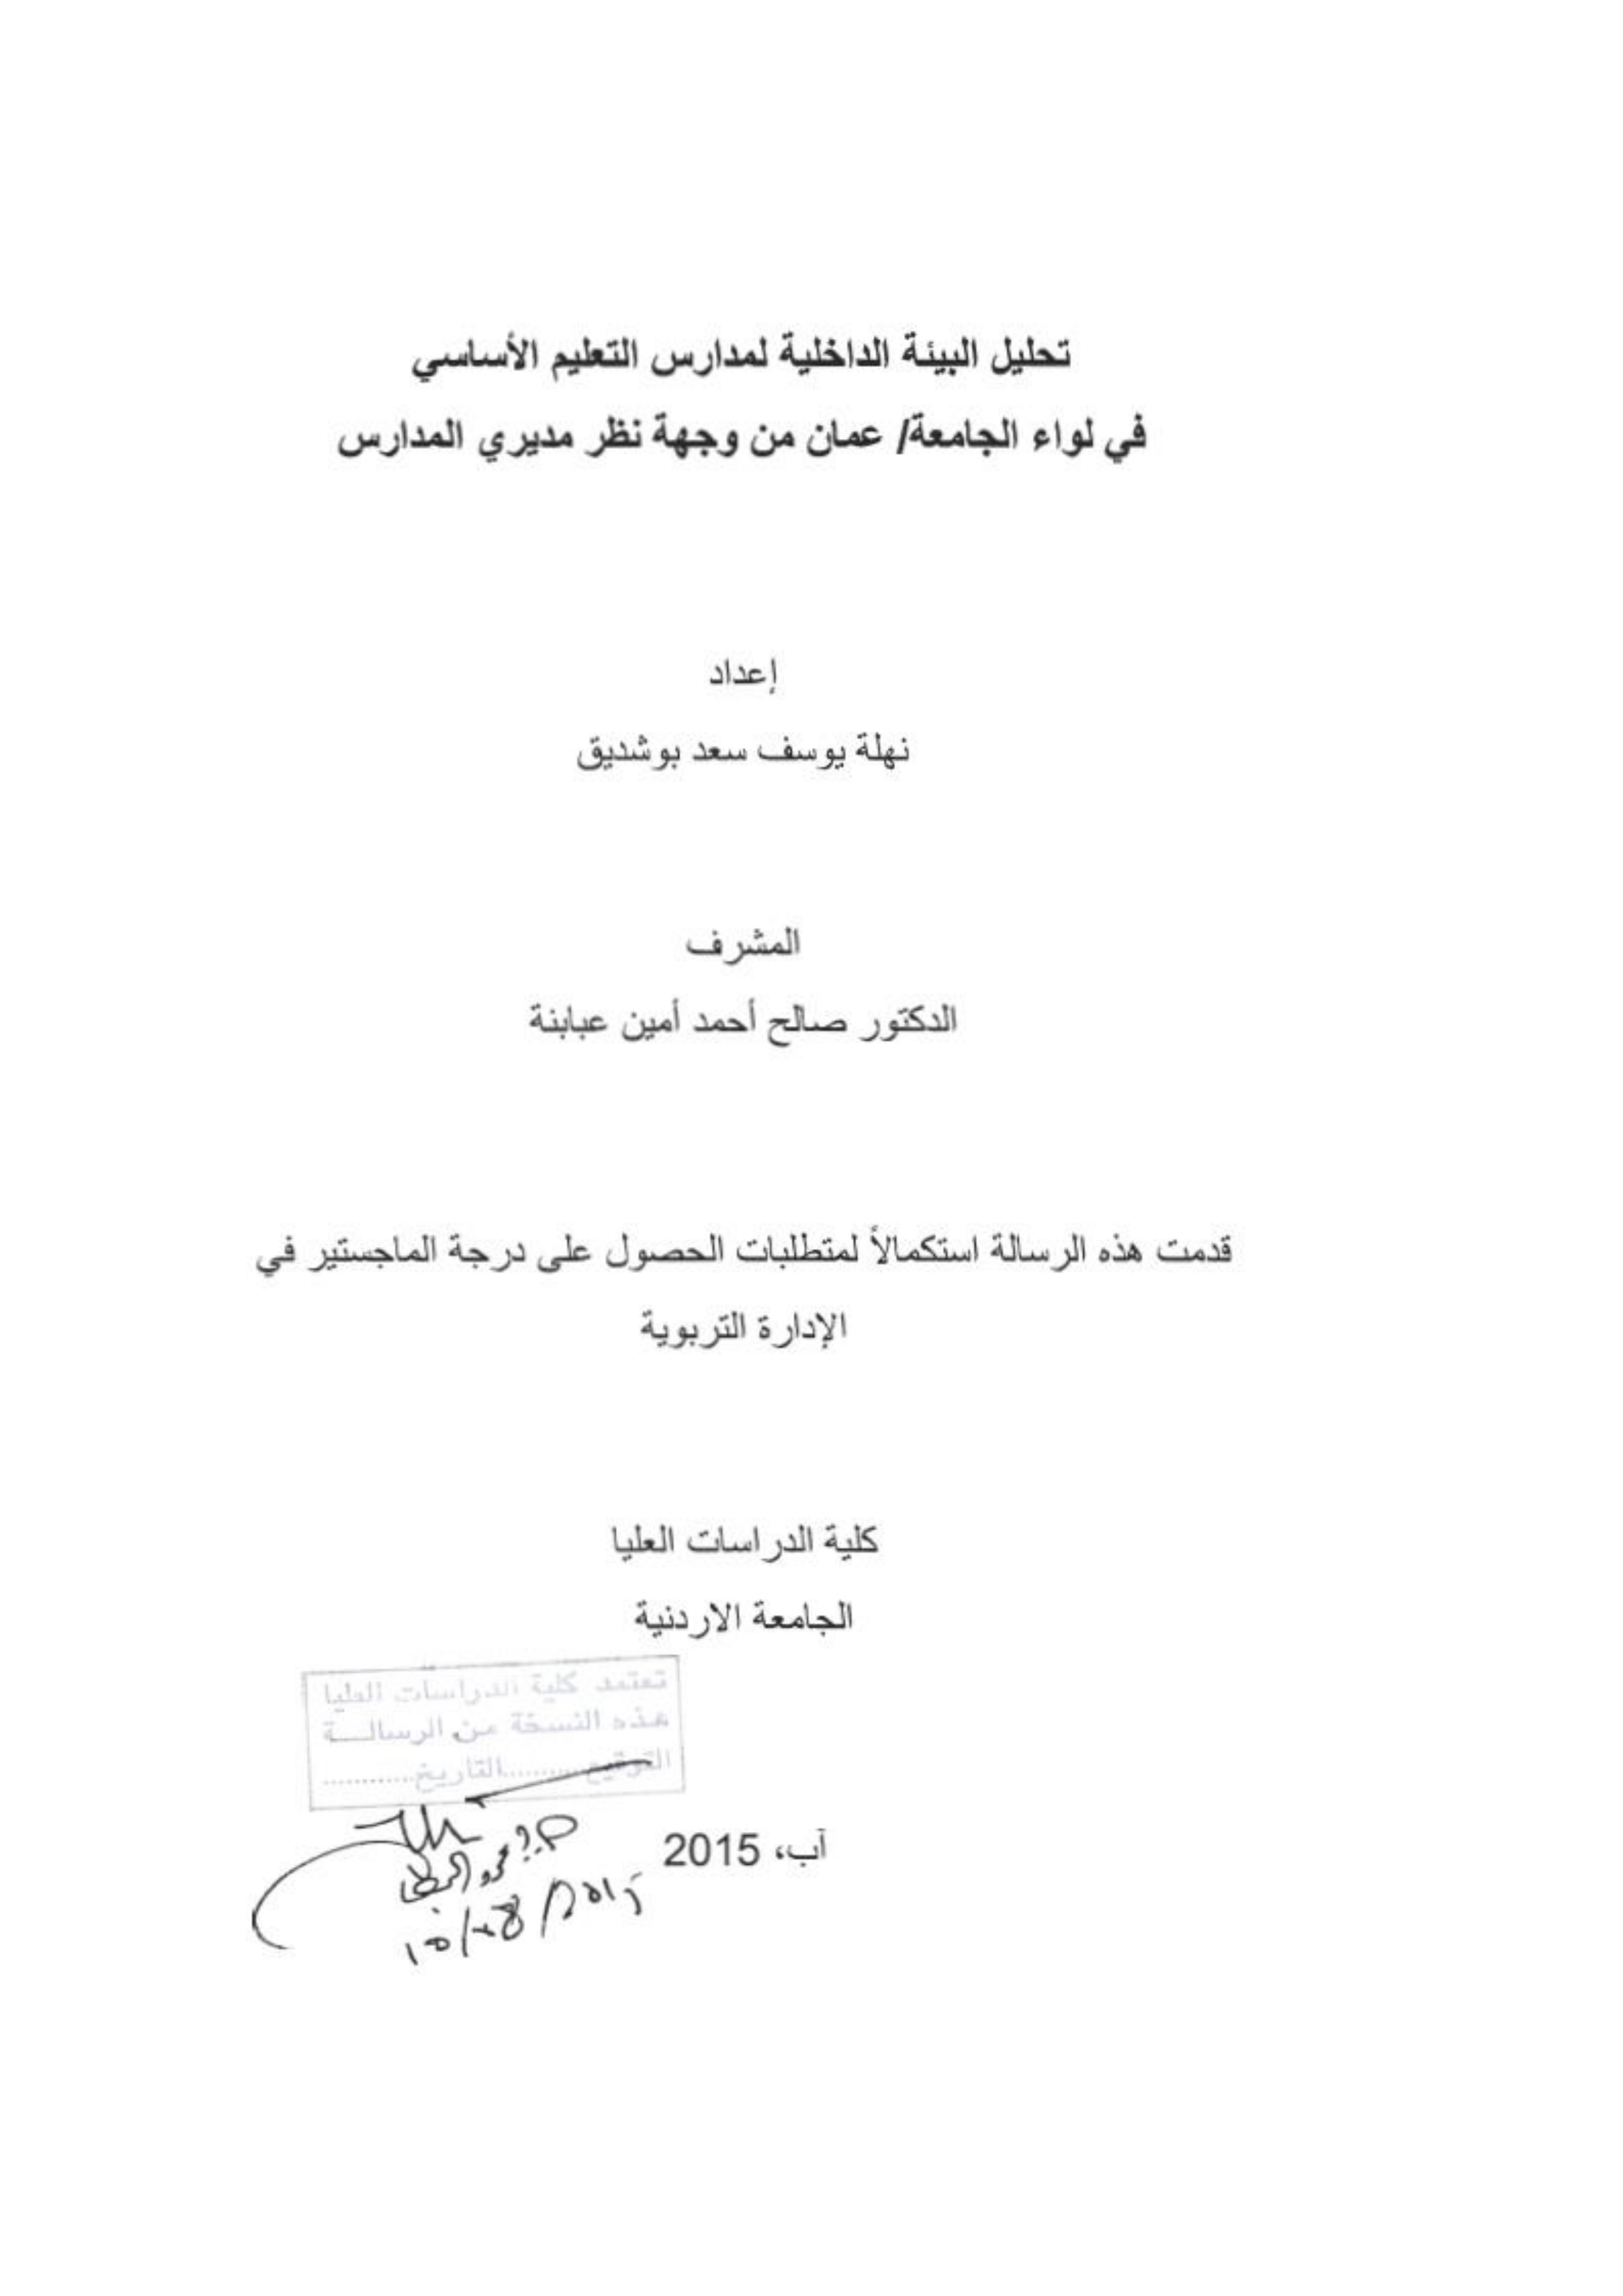 تحليل البيئة الداخلية لمدارس التعليم الأساسي
في لواء الجامعة/ عمان من وجهة نظر مديري المدارس
إعداد
نهلة يوسف سعد بوشديق
المشرف
الدكتور صالح أحمد أمين عبابنة
قدمت هذه الرسالة استكمالاً لمتطلبات الحصول على درجة الماجستير في
الإدارة التربوية
كلية الدراسات العليا
الجامعة الاردنية
تعتمد كلية الدراسات العليا
هذه النسخة من الرسالـــة
التوقيع...........التاريخ...........
آب، 2015